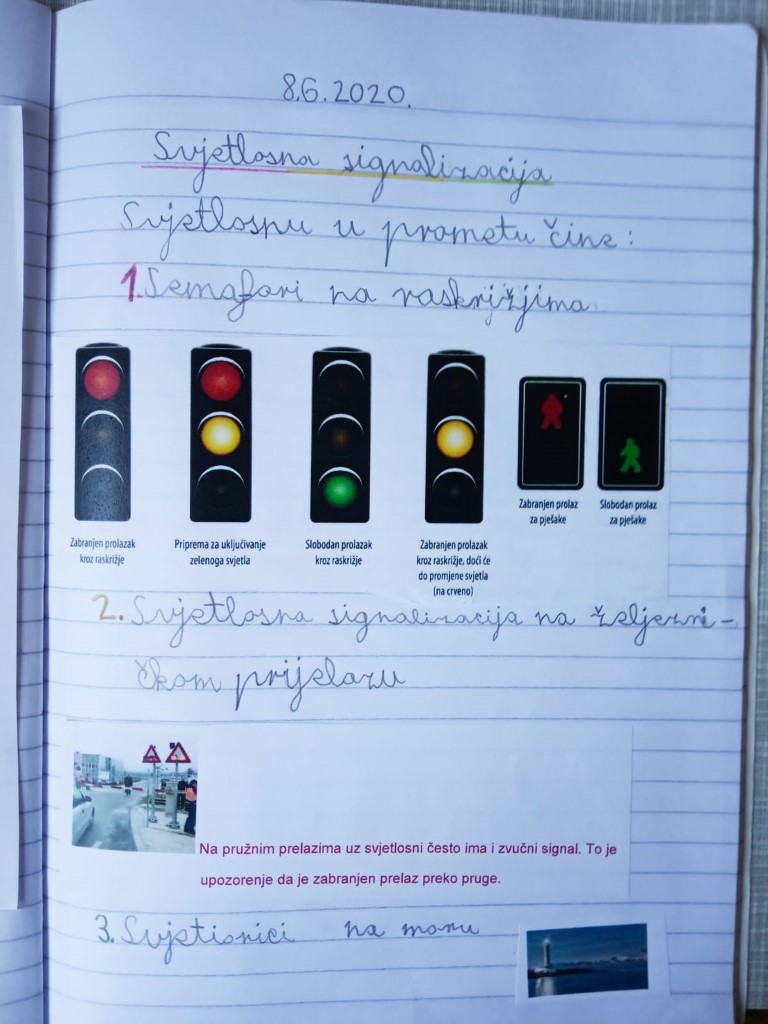 8.6.2020.
Svjetlosna signalizacija
Svjetlosnu u prometu čine:
1. Semafori na raskrižjima
Zabranjen prolazak
kroz raskrižje
Priprema za uključivanje
zelenoga svjetla
Slobodan prolazak
kroz raskrižje
Zabranjen prolazak
kroz raskrižje, doći će
do promjene svjetla
(na crveno)
Zabranjen prolaz
za pješake
Slobodan prolaz
za pješake
2. Svjetlosna signalizacija na željezni-
čkom prijelazu
Na pružnim prelazima uz svjetlosni često ima i zvučni signal. To je
upozorenje da je zabranjen prelaz preko pruge.
3. Svjetionici na moru